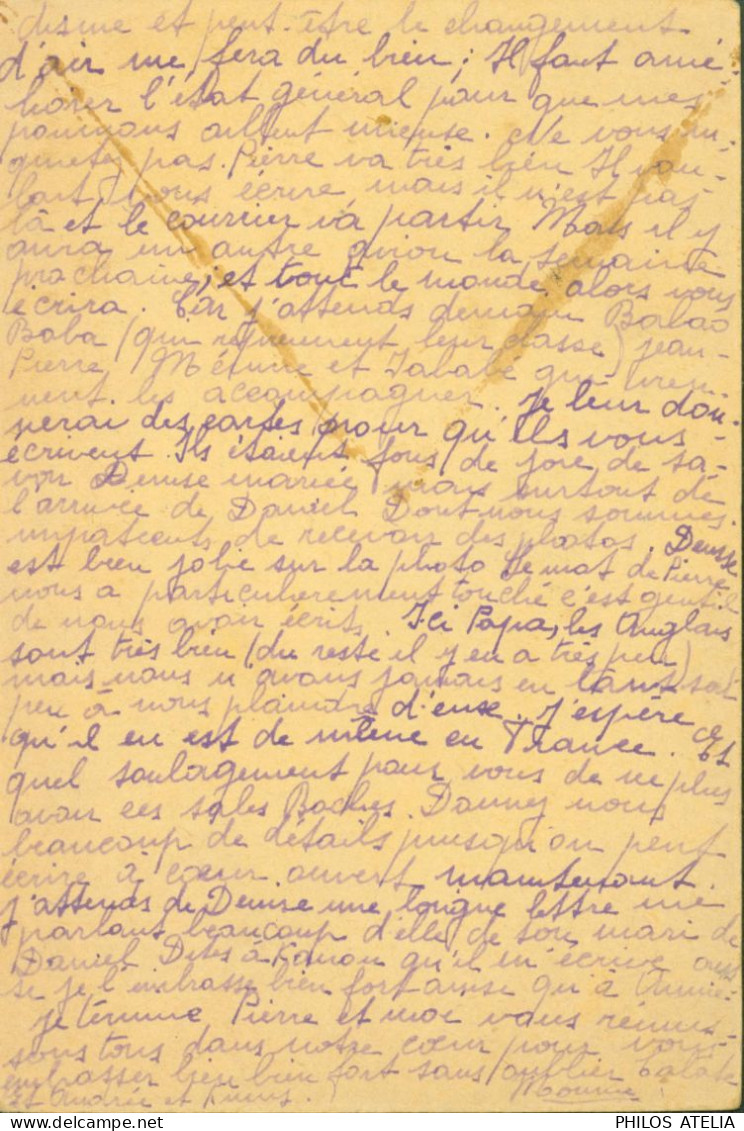 disine et peut-être le changement
d'air me fera du bien; Il faut amé-
liorer l'état général pour que mes
poumons aillent mieuse. Ne vous in-
quietez pas. Pierre va très bien Il vou-
lait vous écrire mais il n'est pas
là et le courrier va partir Mais il y
aura un autre avion la semaine
prochaine, et tout le monde alors vous
écrira. Car j'attends demain Babao
Baba (qui reprennent leur classe) jean-
Pierre, et qui vien-
nent les accompagner. Je leur don-
nerai des cartes pour qu'ils vous
écrivent. Ils étaient fous de joie de sa-
voir Denise mariée mais surtout de
l'arrivée de Daniel Dont nous sommes
impatients de recevoir des photos. Denise
est bien jolie sur la photo Le mot de Pierre
nous a particulièrement touché c'est gentil
de nous avoir écrit. Ici Papa, les Anglais
sont très bien (du reste il y en a très peu)
mais nous n'avons jamais eu tant soit
peu à nous plaindre d'euse. J'espère
qu'il en est de même en France. Et
quel soulagement pour vous de ne plus
avoir ces sales Boches. Donnez nous
beaucoup de détails puisqu'on peut
écrire à cœur ouvert maintenant.
j'attends de Denise une longue lettre me
parlant beaucoup d'elle de son mari de
Daniel Dites à qu'il m'écrive aus-
si je l'embrasse bien fort ainse qu'à Annie.
je termine Pierre et moi vous réunis-
sons tous dans notre cœur pour vous
embrasser bien bien fort sans oublier
et Andrée et
PHILOS ATELIA